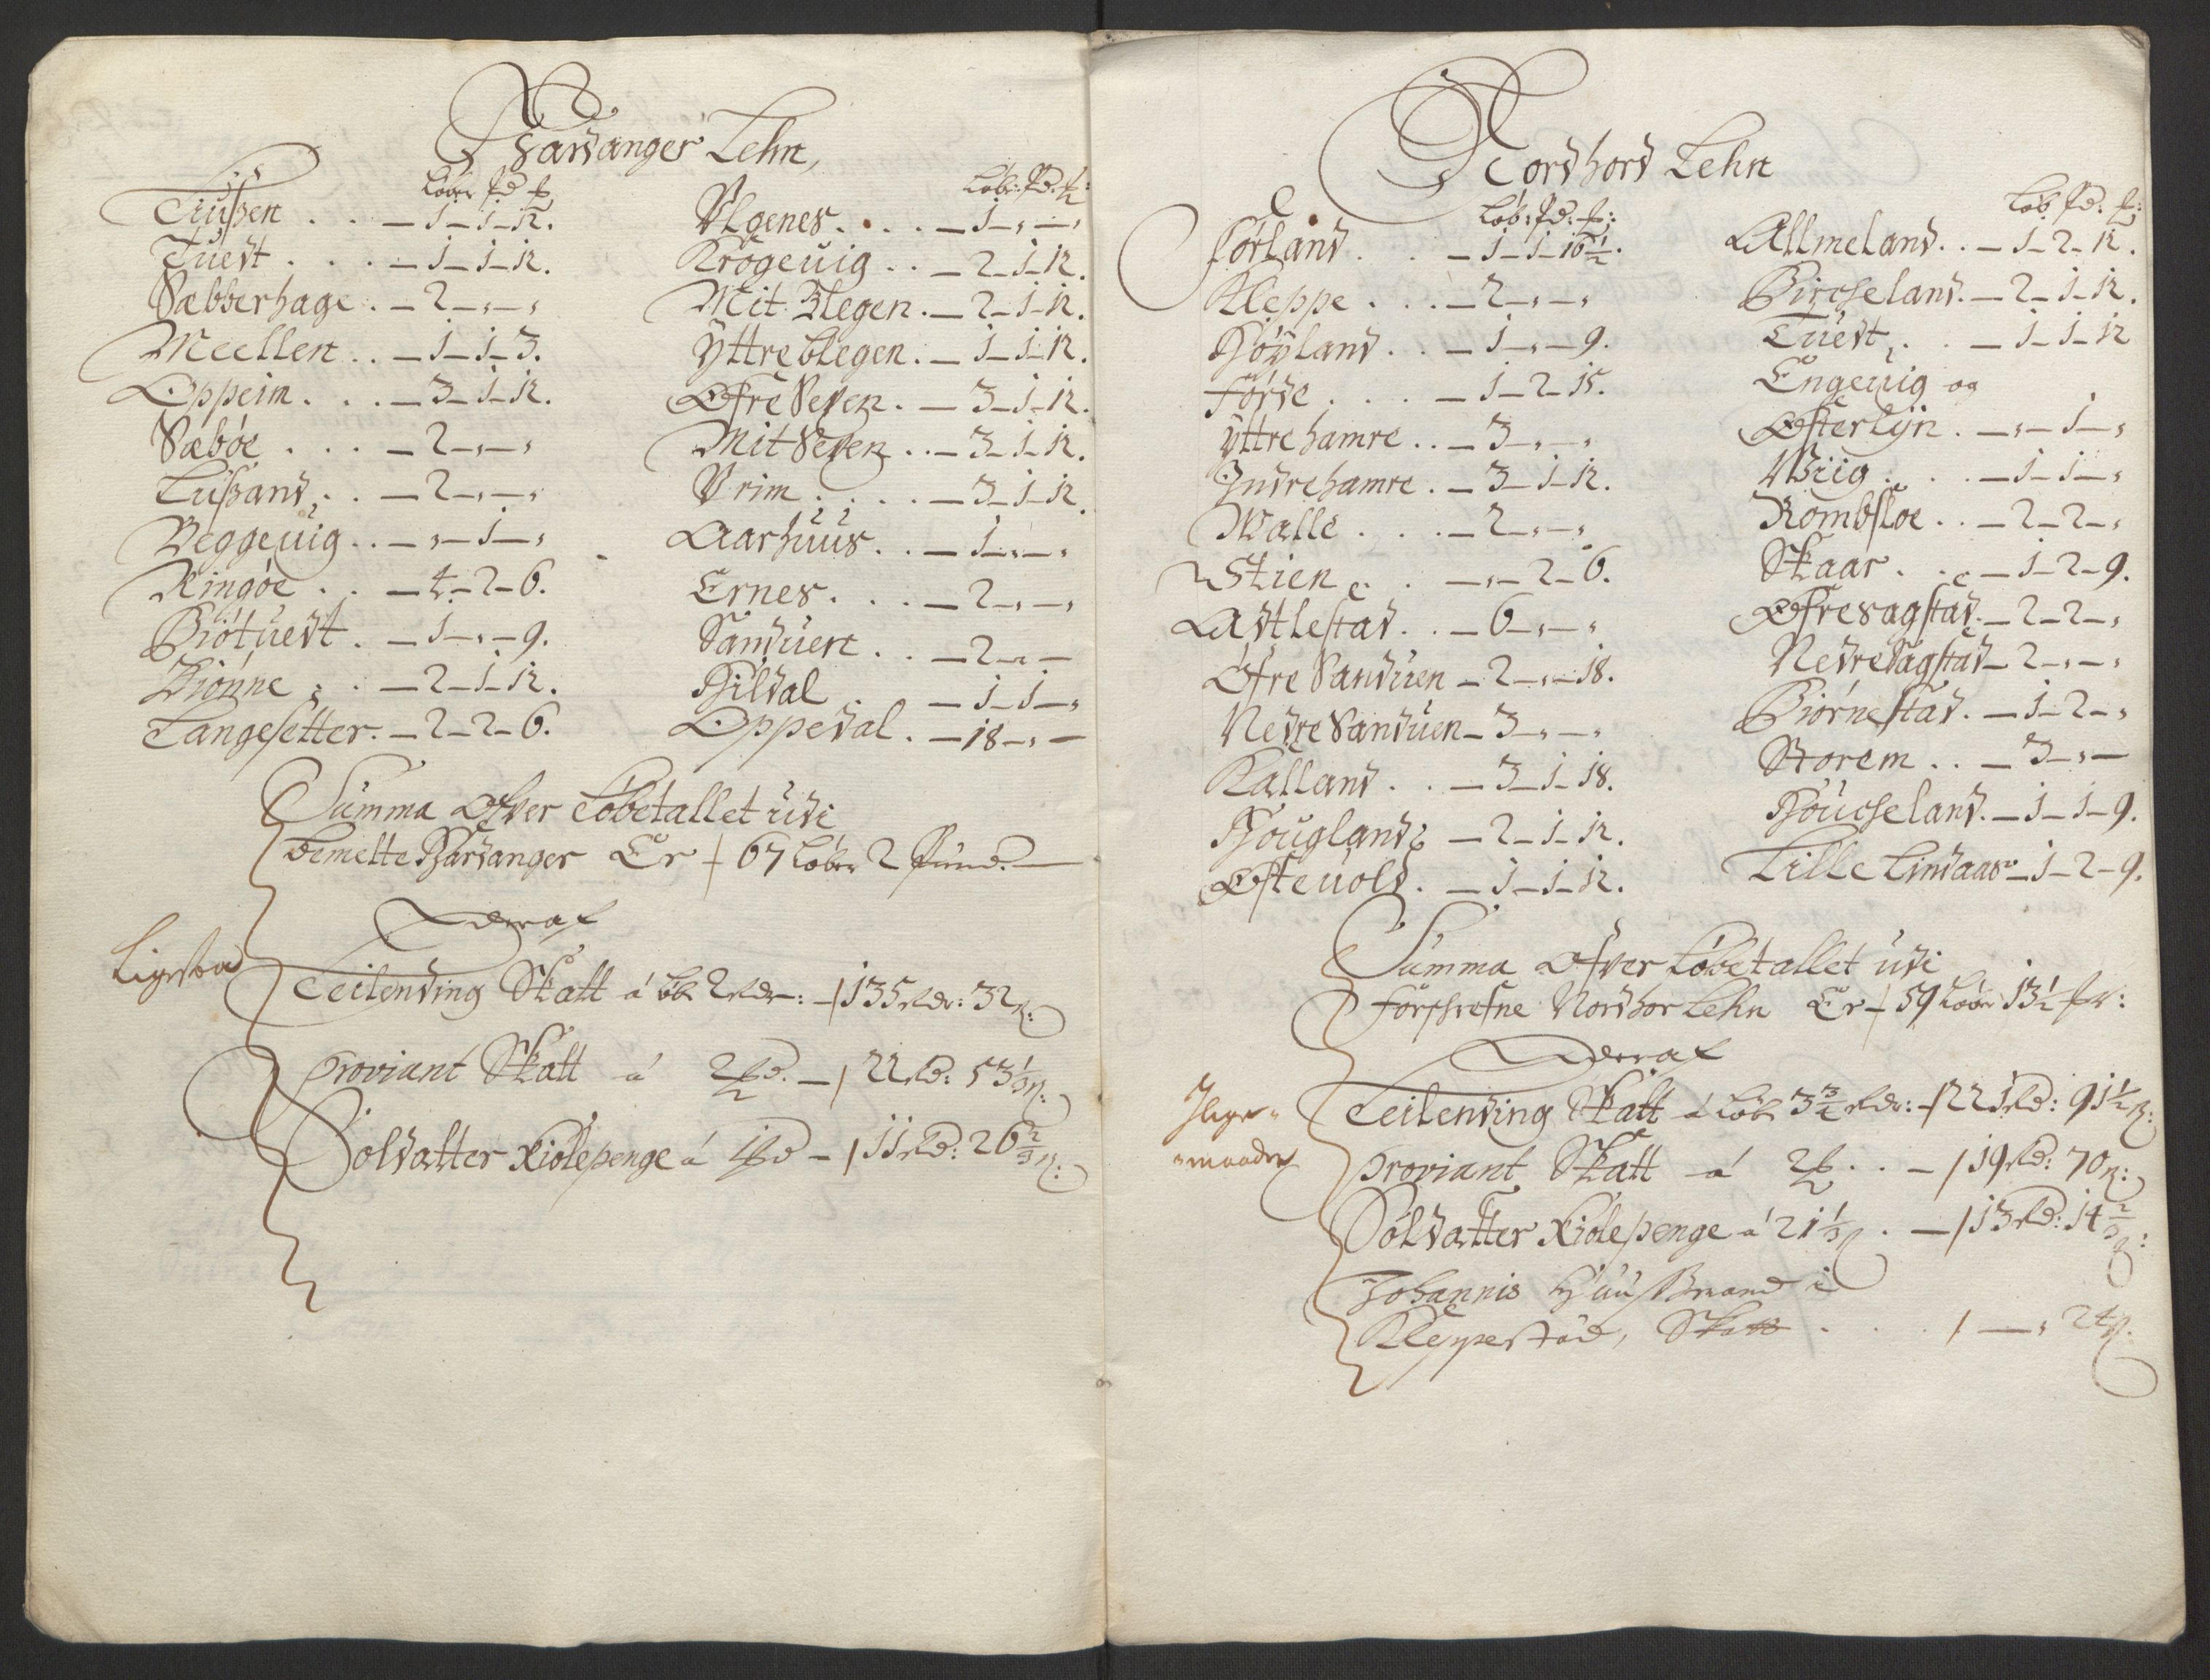 Hardanger Lehn,
Løber Pd ℔
Tiußen . . — 1 — 1 — 12.
Tuedt . . . — 1 — 1 — 12.
Sæbberhage . — 2 — „ — „
Meellen . . — 1 — 1 — 3.
Oppeim . . . — 3 — 1 — 12.
Sæbøe . . . — 2 — „ — „
Lußand . . — 2 — „ — „
Veggeuig . . — „ — 1 — „
Ringøe . . — 4 — 2 — 6.
Biøtuedt . — 1 — „ — 9.
Diønne . . — 2 — 1 — 12.
Langesetter . — 2 — 2 — 6.
Løbr: Pd: ℔:
Ulgenes . . . — 1 — „ — „
Krogeuig . . — 2 — 1 — 12.
Mit Blegen . — 2 — 1 — 12.
Yttre blegen . — 1 — 1 — 12.
Øfre Sexen . — 3 — 1 — 12.
Mit Sexen . . — 3 — 1 — 12.
Vrim . . . . — 3 — 1 — 12.
Aarhuus . . — 1 — „ — „
Ernes . . . — 2 — „ — „
Sanduen . . — 2 — „ —
Hildal . — 1 — 1 — „
Oppedal . — 18 — „ —
Summa Ofver Løbetallet udi
bemelte Hardanger Er 67 Løber 2 Pund. —
Deraf
Ligesaa
Leilending Skatt á Løb 2 Rdr: — 135 Rdr: 32 ß:
Proviant Skatt á 2 ℔d. — 22 Rd: 53 1/3 ß:
Soldatter Kiolepenge á 1 ℔d — 11 Rd: 26 2/3 ß:
Nordhord Lehn
Løb: Pd: ℔:
Førland . . — 1 — 1 — 16 1/2.
Kleppe . . . — 2 — „ — „
Høyland . . — 1 — „ — 9.
Førde . . . — 1 — 2 — 15.
Yttre hamre . . — 3 — „ — „
Indre hamre . — 3 — 1 — 12.
Walle . . . — 2 — „ — „
Stien . . — „ — 2 — 6.
Adtlestad . . — 6 — „ — „
Øfre Sanduen — 2 — „ — 18.
Nedre Sanduen — 3 — „ — „
Kalland . . — 3 — 1 — 18.
Hougland — 2 — 1 — 12.
Østeuold . — 1 — 1 — 12.
Løb Pd: ℔:
Allmeland . . — 1 — 2 — 12.
Bircheland . — 2 — 1 — 12.
Tuedt . . — 1 — 1 — 12
Engeuig og
Østerlijn . — „ — 1 — „
Wiig . . . — 1 — 1 — „
Rombsloe . . — 2 — 2 — „
Skaar . . — 1 — 2 — 9.
Øfresagstad . — 2 — 2 — „
Nedresagstad — 2 — „ — „
Biørnestad . — 1 — 2 — „
Storem . . — 3 — „ —
Houcheland . — 1 — 1 — 9.
Lille Lindaas — 1 — 2 — 9.
Summa Ofver Løbetallet udi
forschrefne Nordhor Lehn Er 59 Løber 13 1/2 ℔:
Deraf
Leilending Skatt á Løb 3 3/4 Rdr: — 221 Rd: 91 1/2 ß:
Proviant Skatt á 2 ℔ . . — 19 Rd: 70 ß:
Soldatter Kiolepenge á 21 1/3 ß . — 13 Rd: 14 2/3 ß:
Johannis Huußmand i
Kleppestad, Skatt . . . — „ 24 ß.